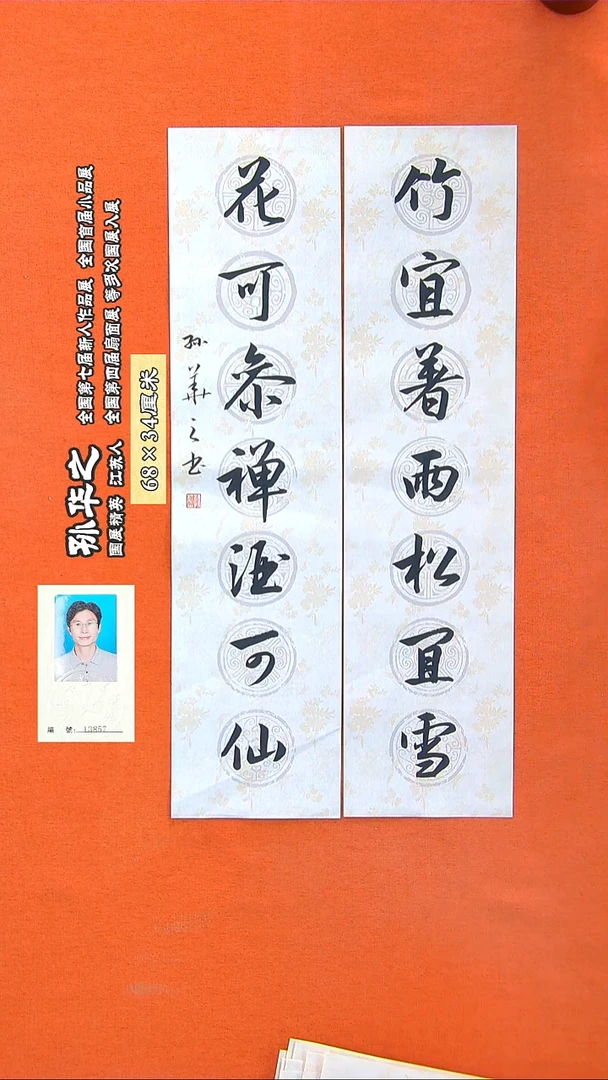 竹宜著雨松宜雪
花可参禅酒可仙
孙華之书
孙华之
国展精英 江苏人
全国第七届新人作品展 全国首届小品展
全国第四届扇面展 等多次国展入展
68×34厘米
編 號: 13857